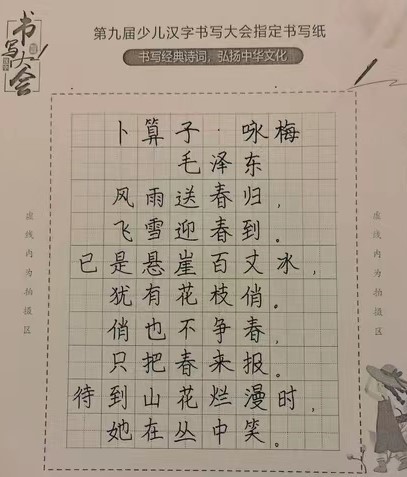 书写大会
第九届少儿汉字书写大会指定书写纸
书写经典诗词，弘扬中华文化
卜算子·咏梅
毛泽东
风雨送春归，
飞雪迎春到。
已是悬崖百丈冰，
犹有花枝俏。
俏也不争春，
只把春来报。
待到山花烂漫时，
她在丛中笑。
虚线内为拍摄区
虚线内为拍摄区